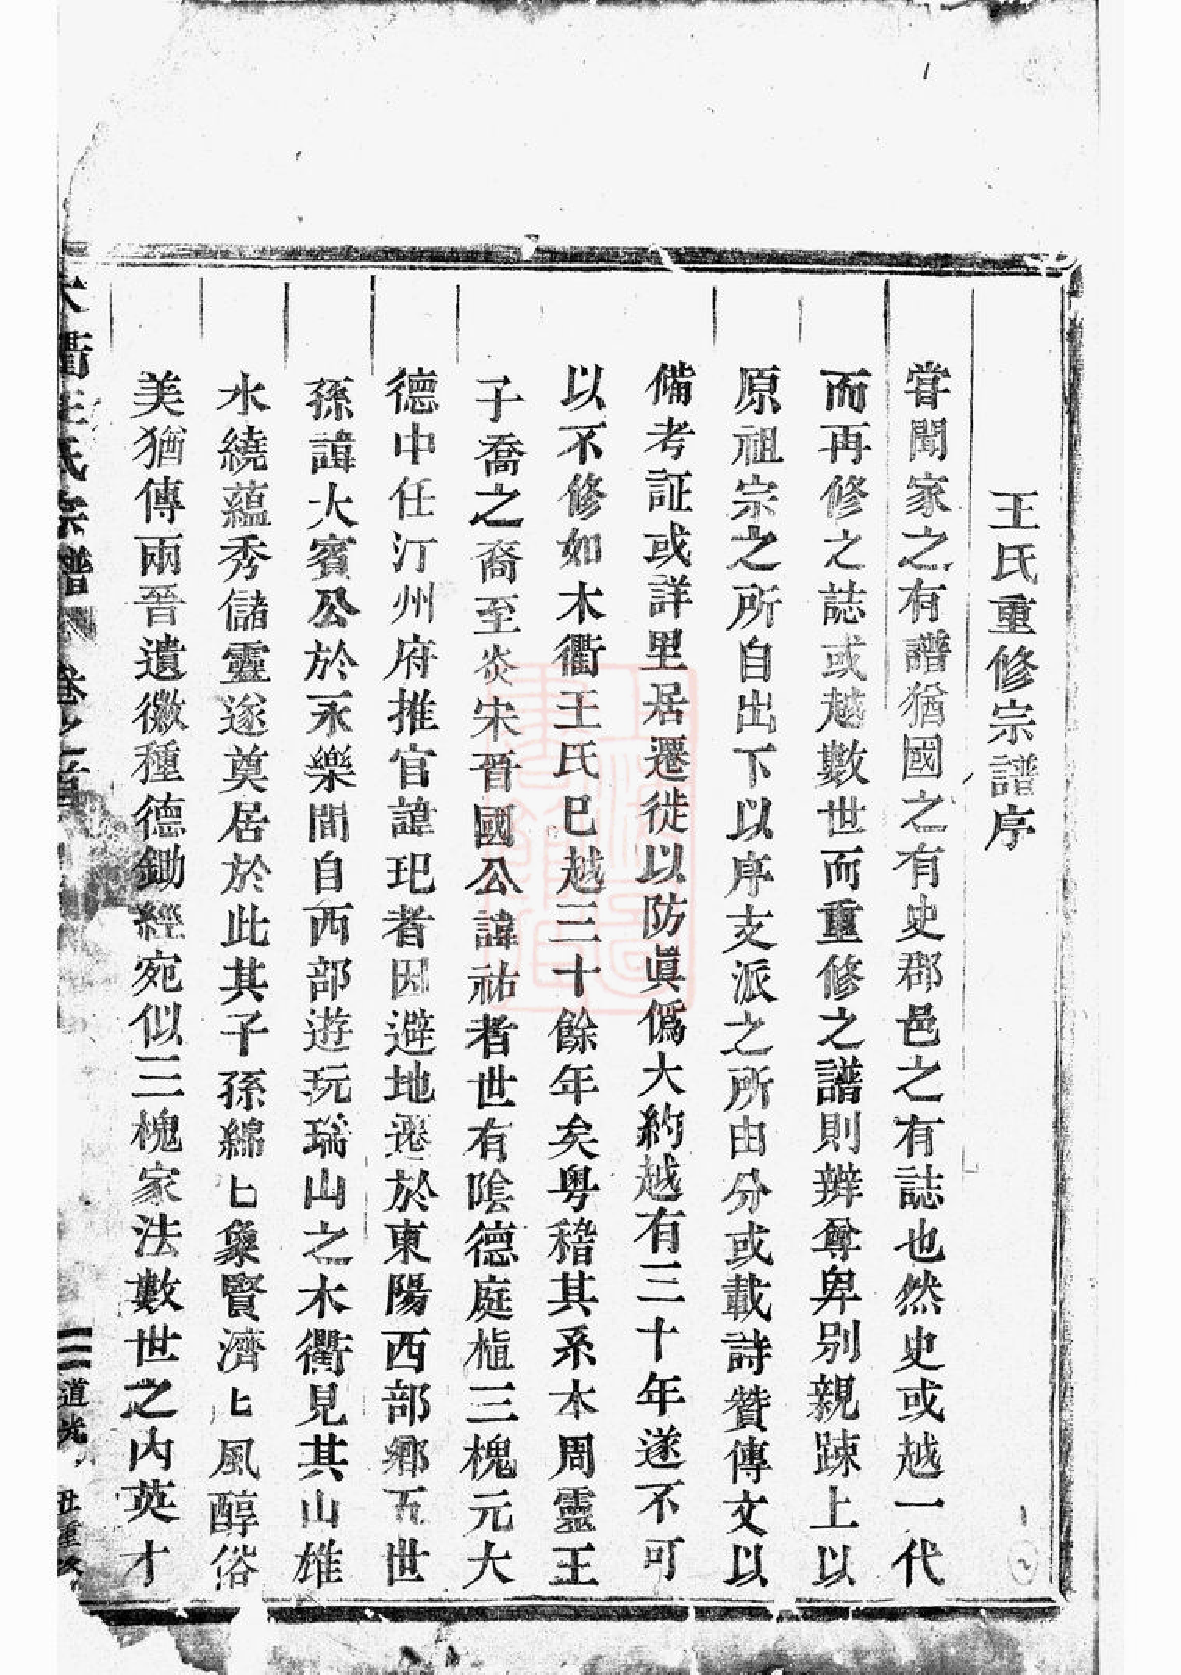 王氏重修宗譜序
嘗聞家之有譜猶國之有史郡邑之有誌也然史或越一代
而再修之誌或越數世而重修之譜則辨尊卑别親踈上以
原祖宗之所自出下以序支派之所由分或載詩贊傳文以
備考証或詳里居遷徙以防眞僞大約越有三十年遂不可
以不修如木衢王氏巳越三十餘年矣粤稽其系本周靈王
子喬之裔至炎宋晋國公諱祐者世有陰德庭植三槐元大
德中任汀州府推官諱玘者因避地遷於東陽西部鄉五世
孫諱大賓公於永樂間自西部遊玩瑞山之木衢見其山雄
水繞蘊秀儲靈遂奠居於此其子孫綿〻象賢濟〻風醇俗
美猶傳兩晋遺徽種德鋤經宛似三槐家法數世之内英才
木衢王氏宗譜 卷之首 二 道光 丑重修